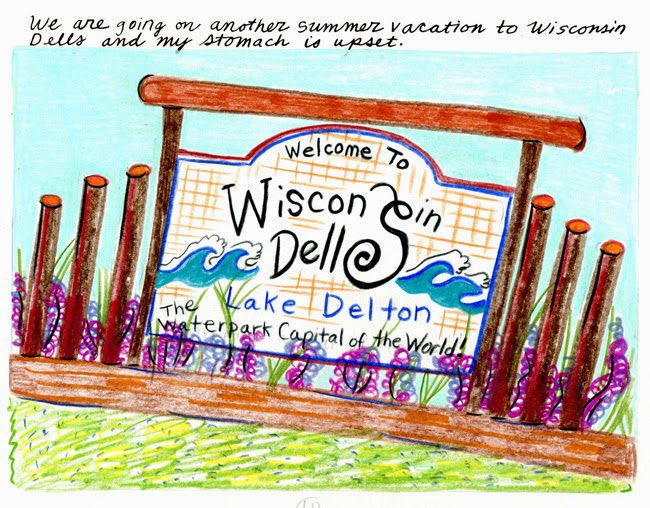 We are going on another summer vacation to Wisconsin
Dells and my stomach is upset.
Welcome To
Wisconsin
Dells
Lake Delton
The
Waterpark Capital of the World!